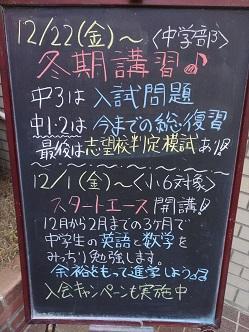 12/22(金)～〈中学部〉
冬期講習♪
中3は 入試問題
中1・2は 今までの総復習
最後は志望校判定模試あり!
12/1(金)～〈小6対象〉
スタートエース開講!
12月から2月までの3ヶ月で
中学生の英語と数学を
みっちり勉強します。
余裕をもって進学しよう
入会キャンペーンも実施中